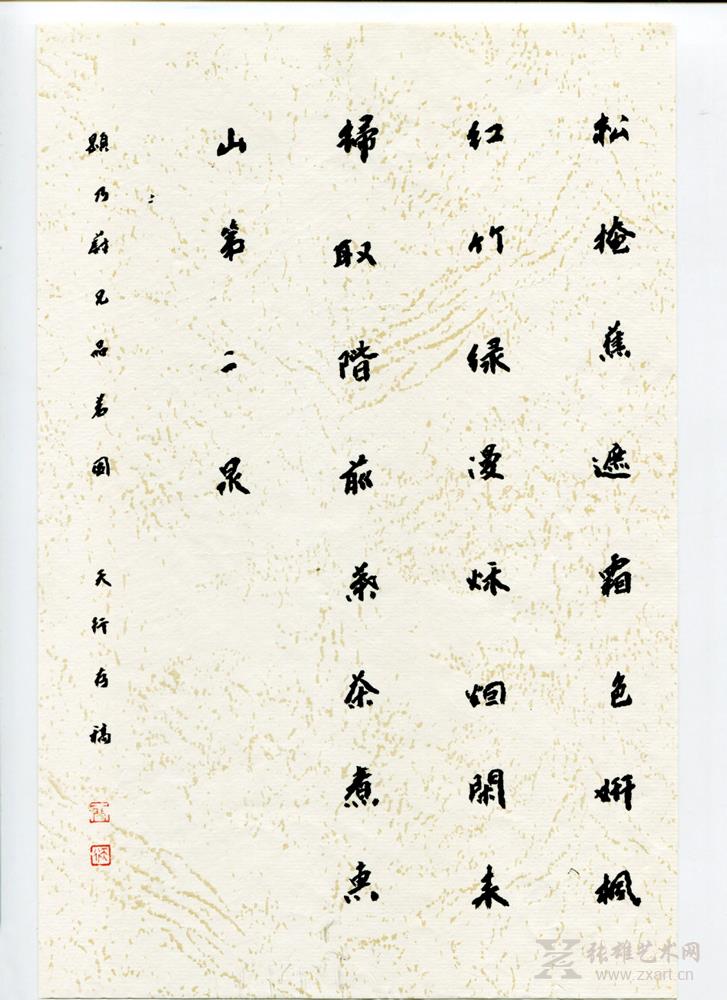 松掩蕉遮霜色妍楓
红竹绿漫秋烟閑来
掃取階前葉茶煮惠
山第二泉
題乃蔚兄品茗圖 天行存稿
张雄艺术网
www.zxart.cn